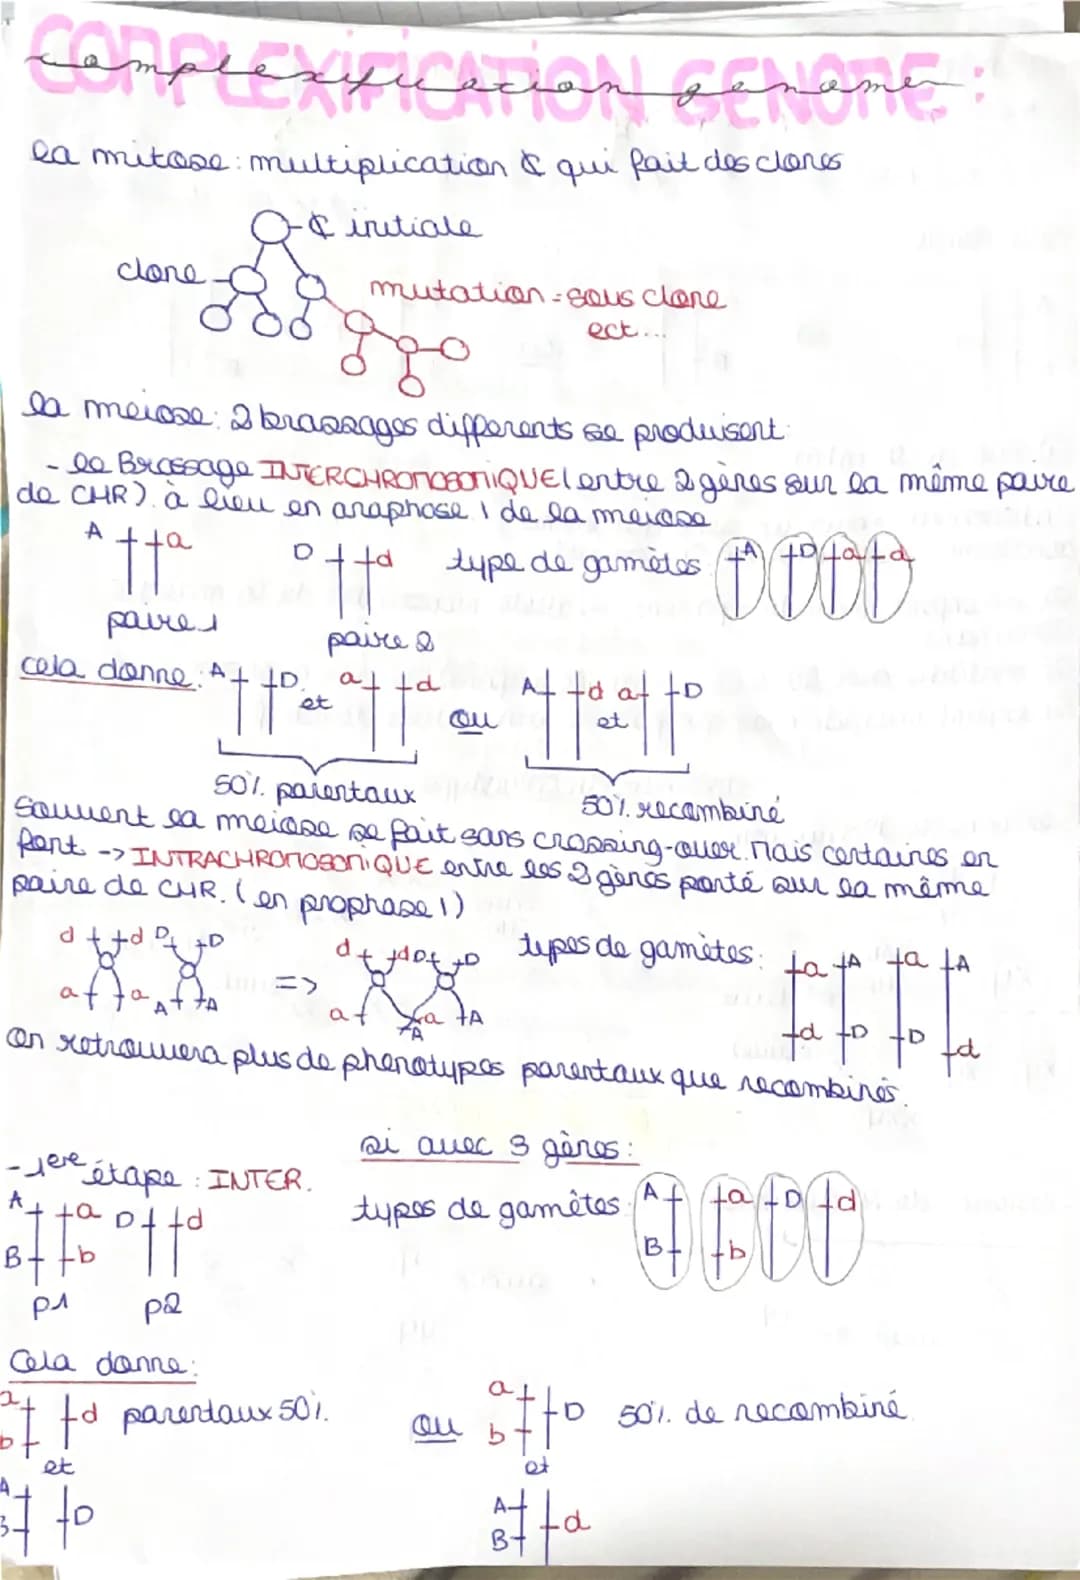 COMPLEXIFICATION GENOME :
complexification genome
la mitose : multiplication ₵ qui fait des clones
₵ initiale
clone
mutation = sous clone
ect...
la meiose : 2 brassages differents se produisent :
- le Brassage INTERCHROMOSOMIQUE (entre 2 gènes sur la même paire
de CHR) à lieu en anaphase 1 de la meiose
A a D d type de gamètes : A D a d
paire 1 paire 2
cela donne : A D et a d ou A d et a D
50% parentaux 50% recombiné
Souvent la meiose se fait sans crossing-over. Mais certaines en
font -> INTRACHROMOSOMIQUE entre les 2 gènes porté sur la même
paire de CHR. (en prophase 1)
d d D D => d d D D types de gamètes : a A a A
a a A A a A a A d D D d
on retrouvera plus de phenotypes parentaux que recombinés.
si avec 3 gènes :
- 1ere étape : INTER.
A a D d types de gamètes : A a D d
B b B b
p1 p2
Cela donne :
a d parentaux 50% ou a D 50% de recombiné
b b
et et
A D A d
B B